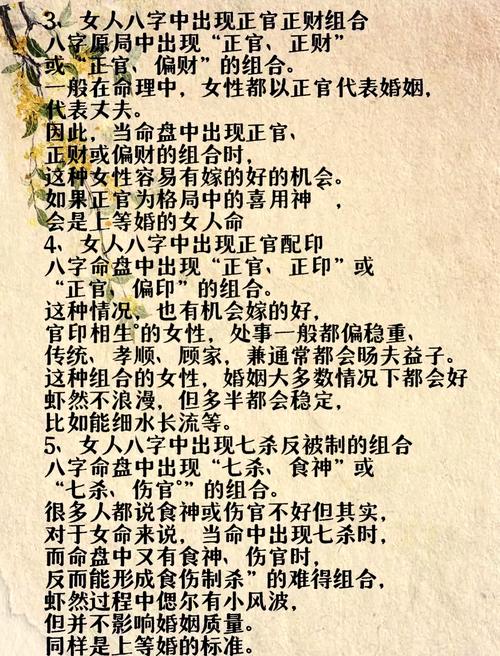 3、女人八字中出现正官正财组合
八字原局中出现“正官、正财”
或“正官、偏财”的组合。
一般在命理中，女性都以正官代表婚姻，
代表丈夫。
因此，当命盘中出现正官、
正财或偏财的组合时，
这种女性容易有嫁的好的机会。
如果正官为格局中的喜用神，
会是上等婚的女人命
4、女人八字中出现正官配印
八字命盘中出现“正官、正印”或
“正官、偏印”的组合。
这种情况，也有机会嫁的好，
官印相生的女性，处事一般都偏稳重、
传统、孝顺、顾家，兼通常都会旸夫益子。
这种组合的女性，婚姻大多数情况下都会好
虾然不浪漫，但多半都会稳定，
比如能细水长流等。
5、女人八字中出现七杀反被制的组合
八字命盘中出现“七杀、食神”或
“七杀、伤官”的组合。
很多人都说食神或伤官不好但其实，
对于女命来说，当命中出现七杀时，
而命盘中又有食神、伤官时，
反而能形成食伤制杀”的难得组合，
虾然过程中偲尔有小风波，
但并不影响婚姻质量。
同样是上等婚的标准。